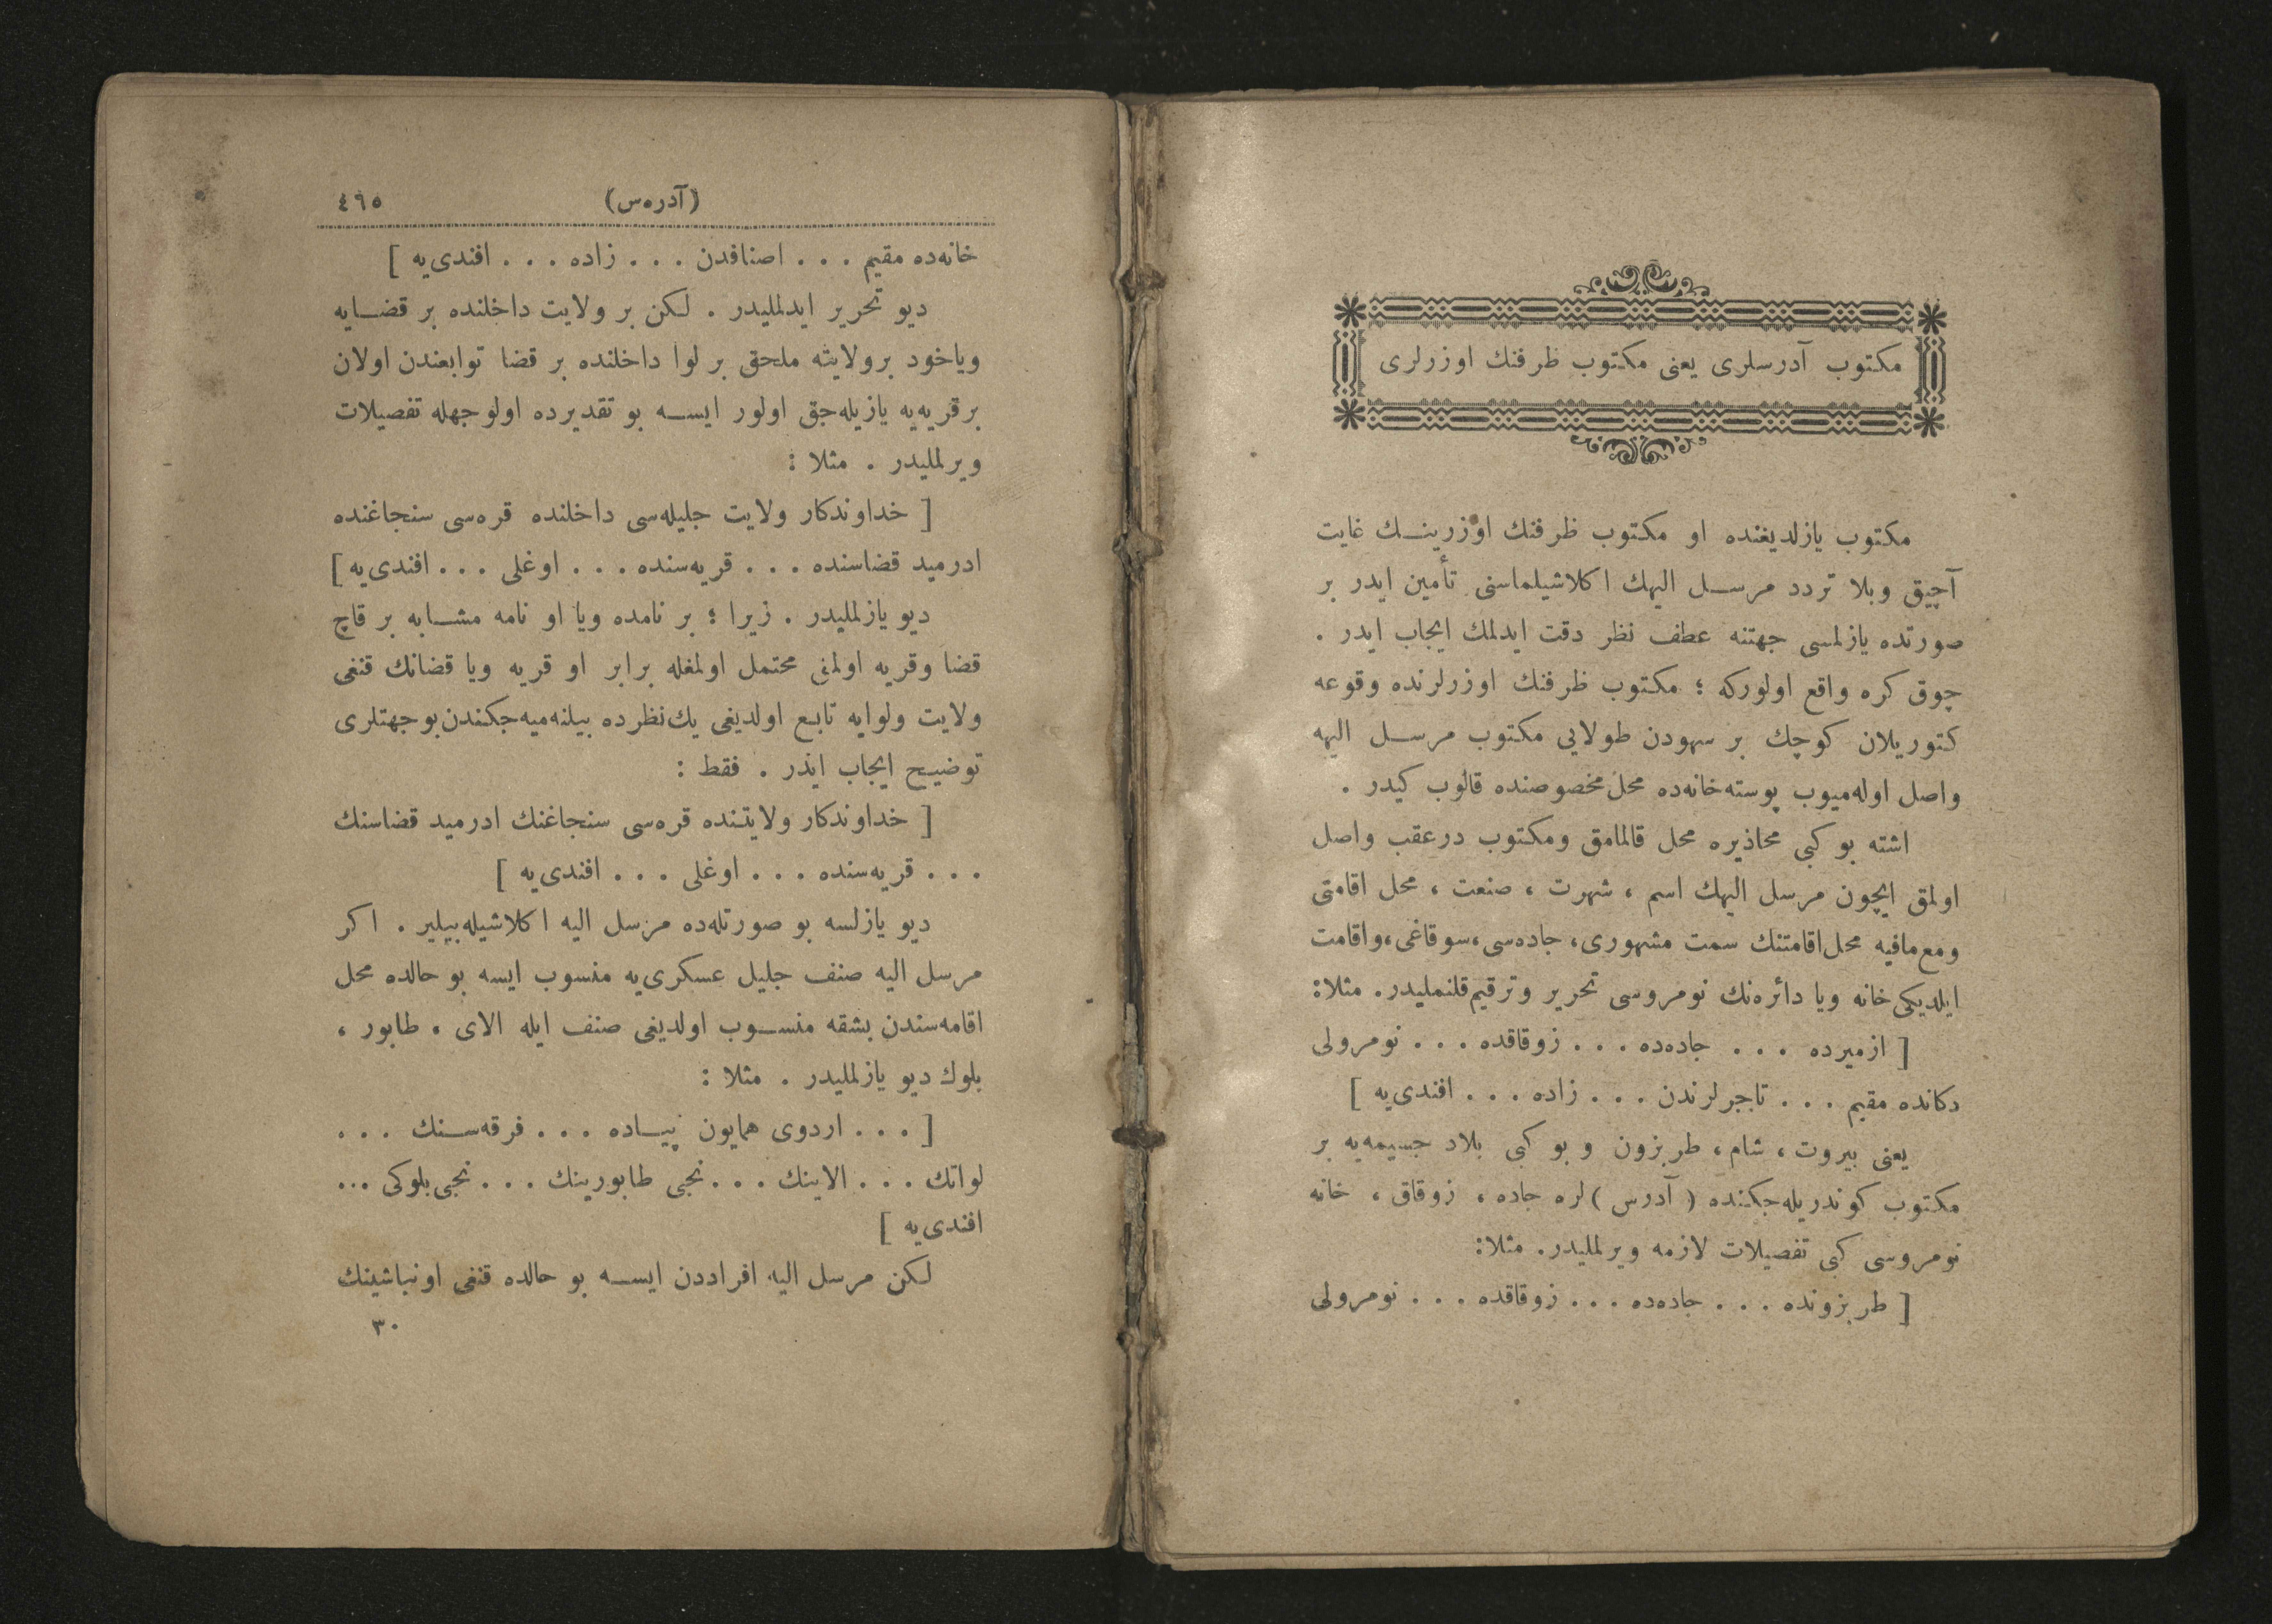 مكتوب آدرسلری یعنی مكتوب ظرفنك اوزرلری
مكتوب یازلدیغنده او مكتوب ظرفنك اوزرینـك غایت
آچیق وبلا تردد مرسـل الیهك اكلاشیلماسنی تأمین ایدر بر
صورتده یازلمسی جهتنه عطف نظر دقت ایدلمك ایجاب ایدر .
چوق كره واقع اولوركه ؛ مكتوب ظرفنك اوزرلرنده وقوعه
كتوریلان كوچك بر سهودن طولایی مكتوب مرسـل الیهه
واصل اوله‌میوب پوسته‌خانه‌ده محل مخصوصنده قالوب كیدر .
اشته بو كبی محاذیره محل قالمامق ومكتوب درعقب واصل
اولمق ایچون مرسل الیهك اسم ، شهرت ، صنعت ، محل اقامتی
ومع‌مافیه محل‌اقامتنك سمت مشهوری، جاده‌سی،سوقاغی،واقامت
ایلدیكی خانه ویا دائره‌نك نومروسی تحریر وترقیم‌قلنملیدر. مثلا:
[ ازمیرده . . . جاده‌ده . . . زوقاقده . . . نومرولی
دكانده مقیم . . . تاجرلرندن . . . زاده . . . افندی‌یه ]
یعنی بیروت ، شام ، طربزون و بو كبی بلاد جسیمه‌یه بر
مكتوب كوندریله‌جكنده ( آدرس ) لره جاده ، زوقاق ، خانه
نومروسی كبی تفصیلات لازمه ویرلملیدر. مثلا:
[ طربزونده . . . جاده‌ده . . . زوقاقده . . . نومرولی
(آدره‌س) ٤٩٥
خانه‌ده مقیم . . . اصنافدن . . . زاده . . . افندی‌یه ]
دیو تحریر ایدلملیدر . لكن بر ولایت داخلنده بر قضـایه
ویاخود برولایته ملحق بر لوا داخلنده بر قضا توابعندن اولان
برقریه‌یه یازیله‌جق اولور ایسـه بو تقدیرده اولوجهله تفصیلات
ویرلملیدر . مثلا :
[ خداوندكار ولایت جلیله‌سی داخلنده قره‌سی سنجاغنده
ادرمید قضاسنده . . . قریه‌سنده . . . اوغلی . . . افندی‌یه ]
دیو یازلملیدر . زیرا ؛ بر نامده ویا او نامه مشـابه بر قاچ
قضا وقریه اولمنی محتمل اولمغله برابر او قریه ویا قضانك قنغی
ولایت ولوایه تابع اولدیغی یك‌نظرده بیلنه‌میه‌جكندن بوجهتلری
توضیح ایجاب ایدر . فقط :
[ خداوندكار ولایتنده قره‌سی سنجاغنك ادرمید قضاسنك
. . . قریه‌سنده . . . اوغلی . . . افندی‌یه ]
دیو یازلسه بو صورتله‌ده مرسل الیه اكلاشیله‌بیلیر . اكر
مرسل الیه صنف جلیل عسكری‌یه منسوب ایسه بو حالده محل
اقامه‌سندن بشقه منسـوب اولدیغی صنف ایله الای ، طابور ،
بلوك دیو یازلملیدر . مثلا :
[ . . . اردوی همایون پیـاده . . . فرقه‌سـنك . . .
لواتك . . . الاینك . . . نجی طابورینك . . . نجی بلوكی ...
افندی‌یه ]
لكن مرسل الیه افراددن ایسـه بو حالده قنغی اونباشینك
٣٠